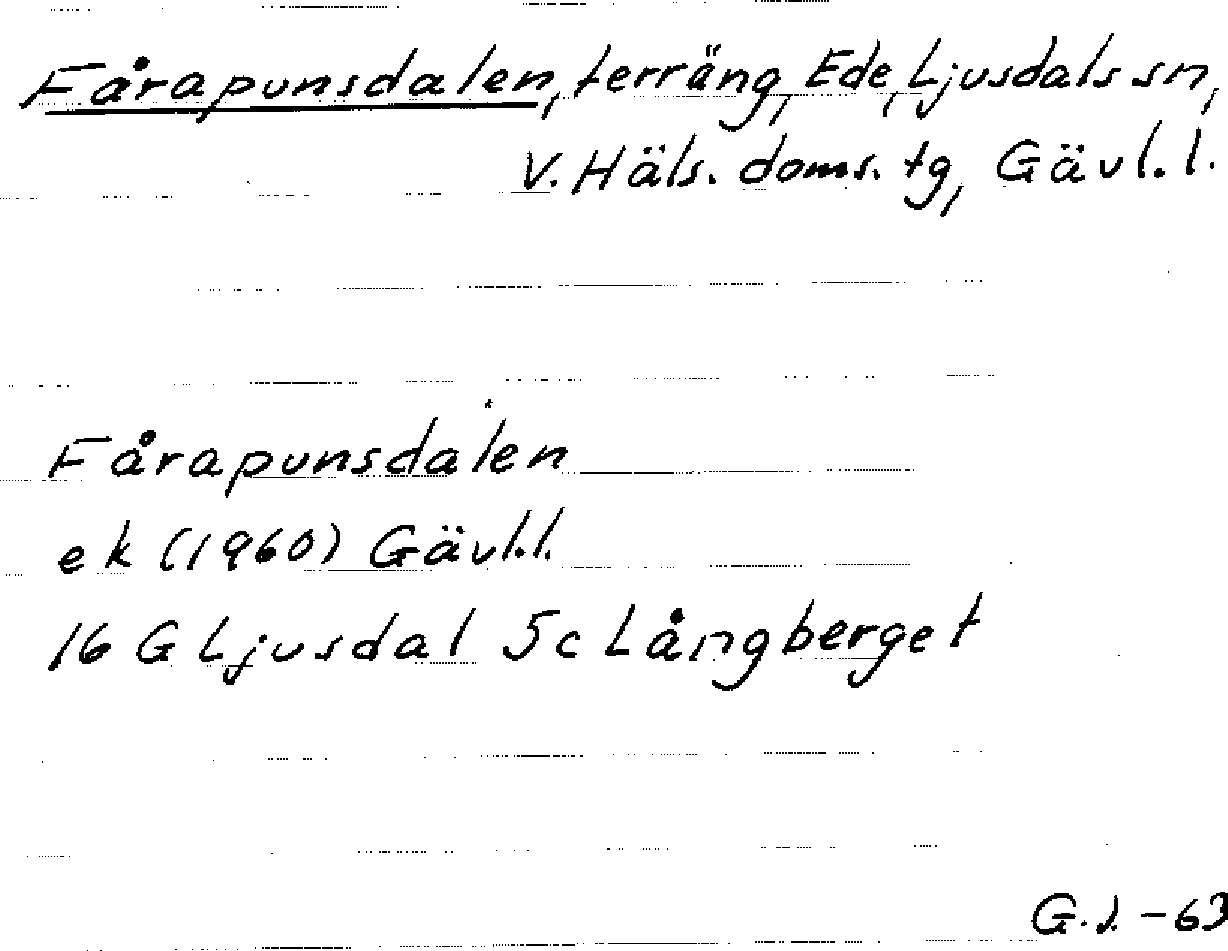 Fårapunsdalen, terräng, Ede, Ljusdals sn,
V. Häls. doms. tg, Gävl. l.
Fårapunsdalen
ek (1960) Gävl. l.
16 G Ljusdal 5c Långberget
-63